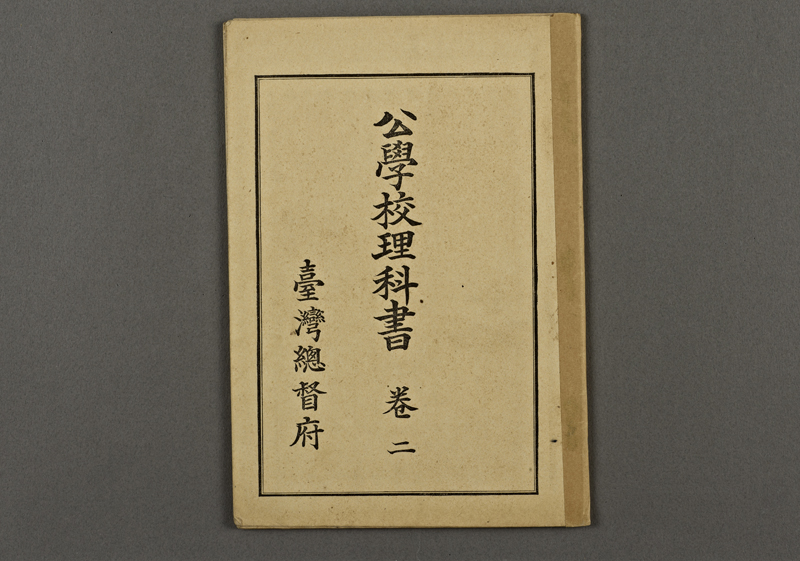 公學校理科書 卷二
臺灣總督府